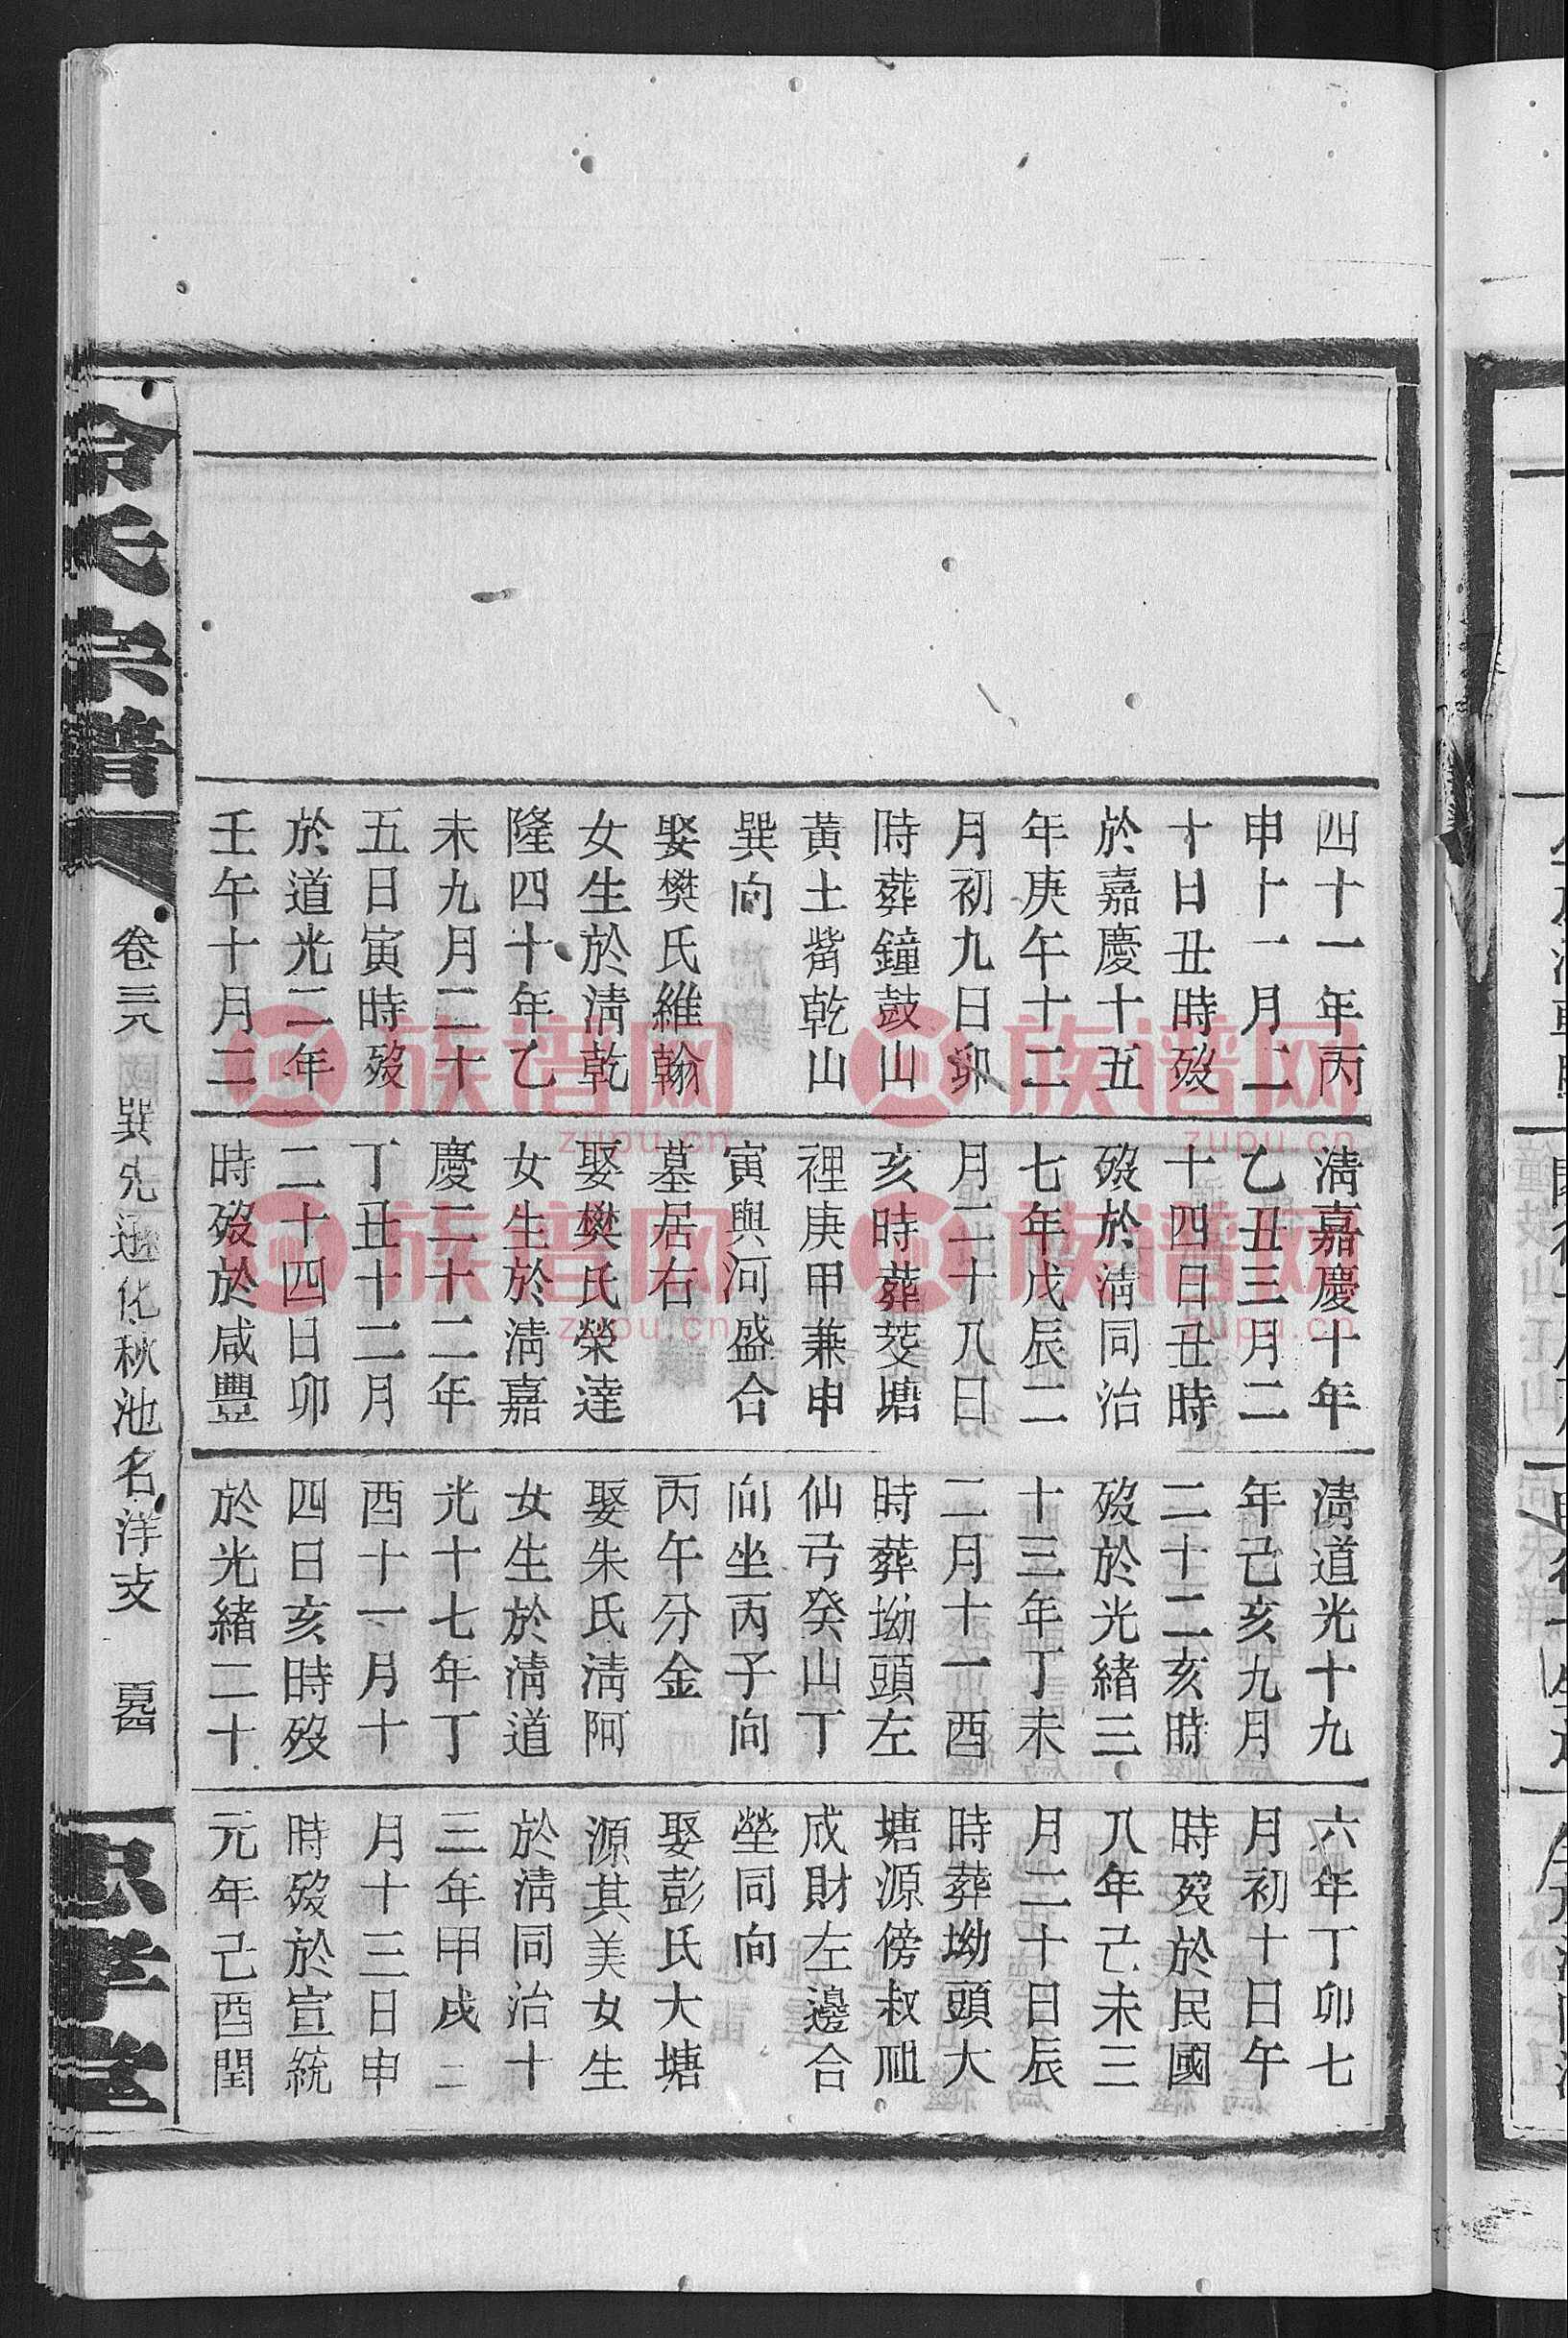 四十一年丙
申十一月二
十日丑時歿
於嘉慶十五
年庚午十二
月初九日卯
時葬鐘鼓山
黃土嘴乾山
巽向
娶樊氏維翰
女生於淸乾
隆四十年乙
未九月二十
五日寅時歿
於道光二年
壬午十月二
淸嘉慶十年
乙丑三月二
十四日丑時
歿於淸同治
七年戊辰二
月二十八日
亥時葬茭塘
裡庚甲兼申
寅與河盛合
墓居右
娶樊氏榮達
女生於淸嘉
慶二十二年
丁丑十二月
二十四日卯
時歿於咸豐
淸道光十九
年己亥九月
二十二亥時
歿於光緒三
十三年丁未
二月十一酉
時葬坳頭左
仙弓癸山丁
向坐丙子向
丙午分金
娶朱氏淸阿
女生於淸道
光十七年丁
酉十一月十
四日亥時歿
於光緒二十
六年丁卯七
月初十日午
時歿於民國
八年己未三
月二十日辰
時葬坳頭大
塘源傍叔祖
成財左邊合
塋同向
娶彭氏大塘
源其美女生
於淸同治十
三年甲戌二
月十三日申
時歿於宣統
元年己酉閏
俞氏宗譜
卷三六 巽九遜化秋池名洋支
忠孝堂
族谱网
zupu.cn
族谱网
zupu.cn
族谱网
zupu.cn
族谱网
zupu.cn